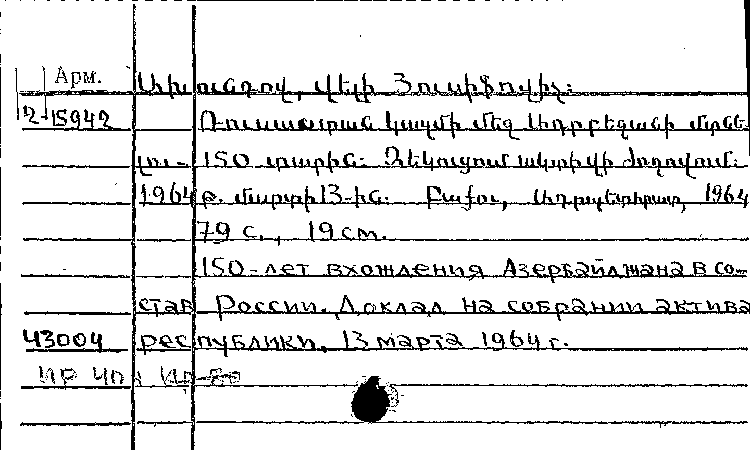 Арм.
Ախունդով, Վելի Յուսիֆովիչ:
2-15942
Ռուսաստանի կազմի մեջ Ադրբեջանի մտնե-
լու - 150 տարին: Զեկուցում ակտիվի ժողովում:
1964 թ. մարտի 13-ին: Բաքու, Ադրպետհրատ, 1964
79 с., 19 см.
150-лет вхождения Азербайджана в со-
став России. Доклад на собрании актива
43004 республики, 13 марта 1964 г.